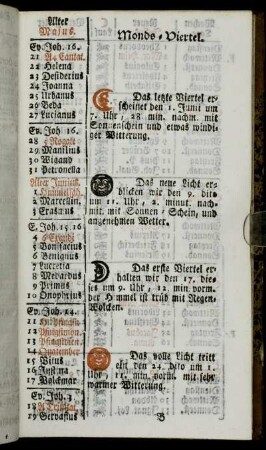 Alter
Majus.
Ev. Joh. 16.
21 A4 Cantat.
22 Helena
23 Desiderius
24 Joanna
25 Urbanus
26 Beda
27 Lucianus
Ev. Joh. 16.
28 5 Rogate
29 Manilius
30 Wigand
31 Petronella
Alter Junius.
1 Himmelfah.
2 Marcellin.
3 Erasmus
E. Joh. 15. 16
4 6 Exaudi
5 Bonifacius
6 Benignus
7 Lucretia
8 Medardus
9 Primus
10 Onophrius
Ev. Joh. 14.
11
12
13 Pfingstfen
14 Quatember
15 Vitus
16 Justina
17 Volckmar
Ev. Joh. 3
18 A Trinitat.
19 Gervasius
Monds-Viertel.
Das letzte Viertel er-
scheinet den 1. Junii um
7. Uhr, 28 min. nachm. mit
Sonnenschein und etwas windi-
ger Witterung.
Das neue Licht er-
blicken wir den 9. dito
um 11. Uhr, 2. minut. nach-
mit. mit Sonnen-Schein, und
angenehmen Wetter.
Das erste Viertel er-
halten wir den 17. die-
ses um 9. Uhr, 12 min. vorm.
der Himmel ist trüb mit Regen-
Wolcken.
Das volle Licht tritt
ein den 24. dito um 1.
Uhr, 11. min. vorm. mit sehr
warmer Witterung.
B